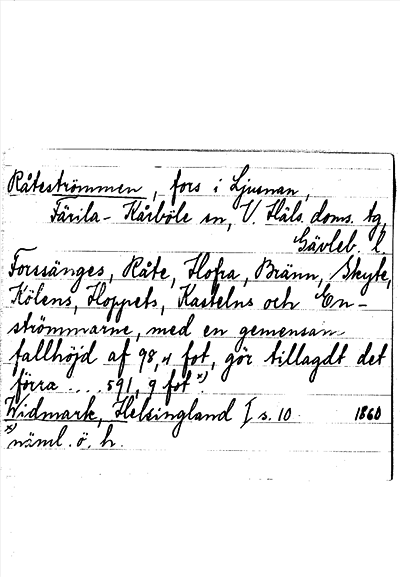 Råteströmmen, fors i Ljusnan,
Färila-Kårböle sn, V. Häls. doms. tg,
Gävleb. l.
Forssänges, Råte, Hofra, Bränn, Skyte,
Kölens, Hoppets, Kastelns och En-
strömmarne, med en gemensam
fallhöjd af 98,4 fot, gör tillagdt det
förra .... 591,9 fot x).
Widmark, Helsingland I s. 10. 1860
x) näml. ö. h.